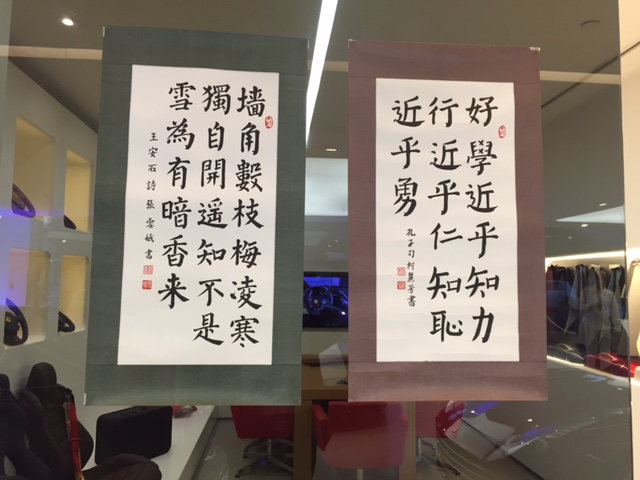 好學近乎知力
行近乎仁知恥
近乎勇
孔子句柯麗芳書
墙角數枝梅凌寒
獨自開遥知不是
雪為有暗香来
王安石詩張雲娥書